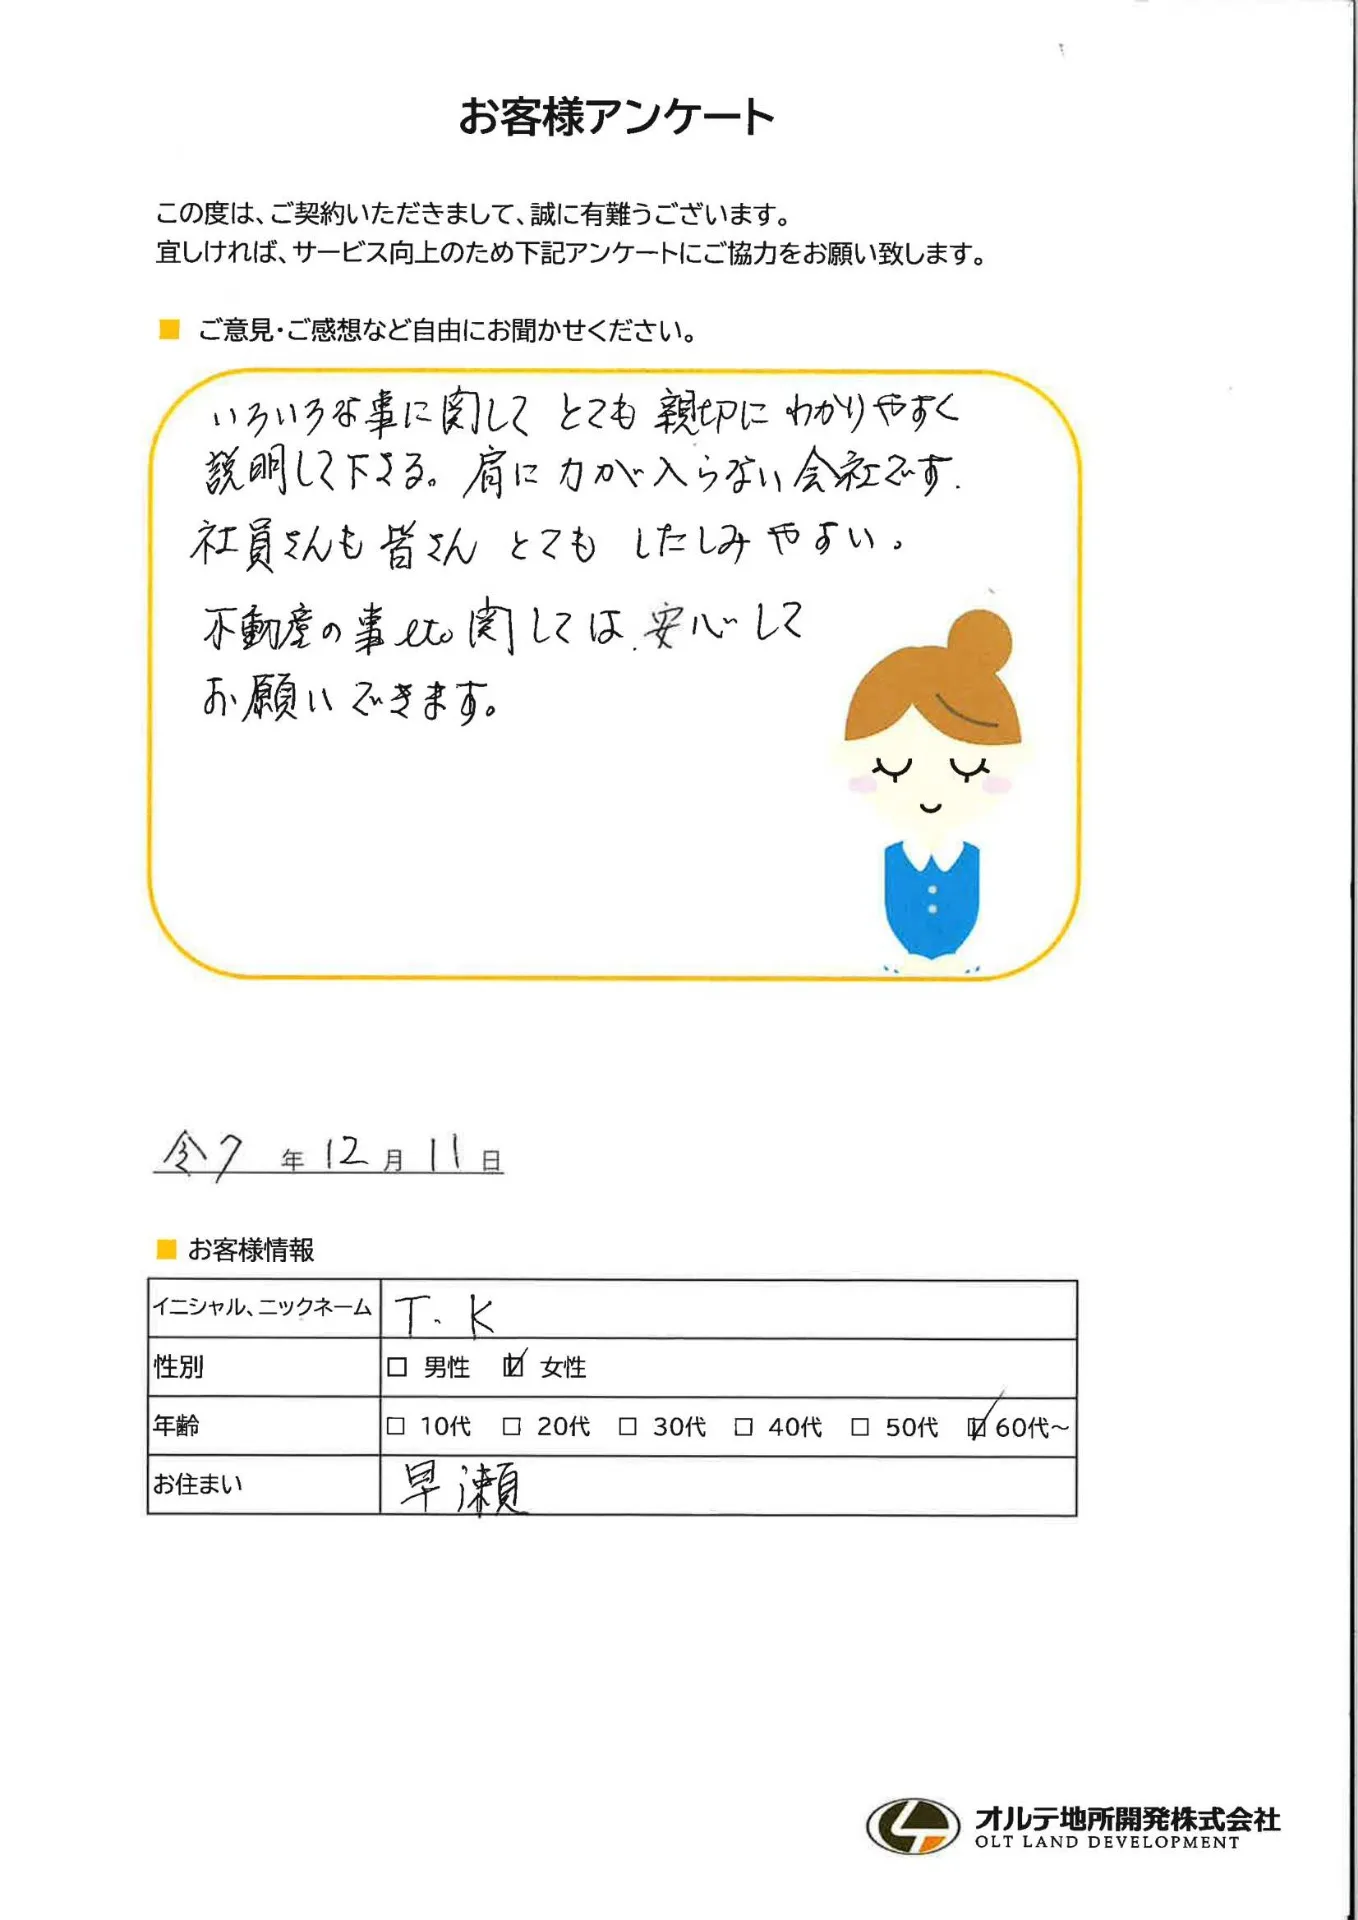 お客様アンケート
この度は、ご契約いただきまして、誠に有難うございます。
宜しければ、サービス向上のため下記アンケートにご協力をお願い致します。
■ ご意見・ご感想など自由にお聞かせください。
いろいろな事に関して とても 親切に わかりやすく
説明して下さる。肩に 力が 入らない 会社です.
社員さんも 皆さん とても したしみ やすい。
不動産の事etc関しては、安心して
お願いできます。
令7 年 12 月 11 日
■ お客様情報
イニシャル、ニックネーム T.K
性別 □ 男性 ☑ 女性
年齢 □ 10代 □ 20代 □ 30代 □ 40代 □ 50代 ☑ 60代~
お住まい 早瀬
オルテ地所開発株式会社
OLT LAND DEVELOPMENT